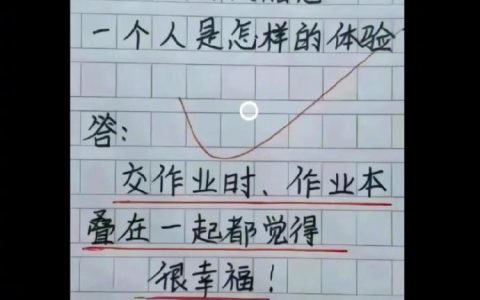 一个人是怎样的体验
答：
交作业时、作业本
叠在一起都觉得
很幸福！